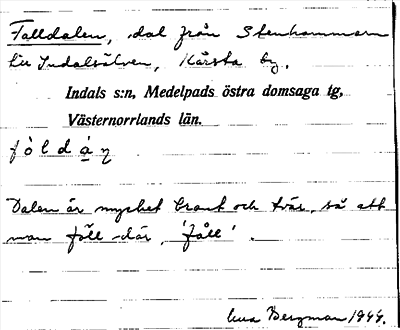 Falldalen, dal från Stenhammarn
till Indalsälven, Kärsta by.
Indals s:n, Medelpads östra domsaga tg,
Västernorrlands län.
Dalen är mycket brant och tvär, så att
man föll där, 'fäll'.
Bergman 1944.